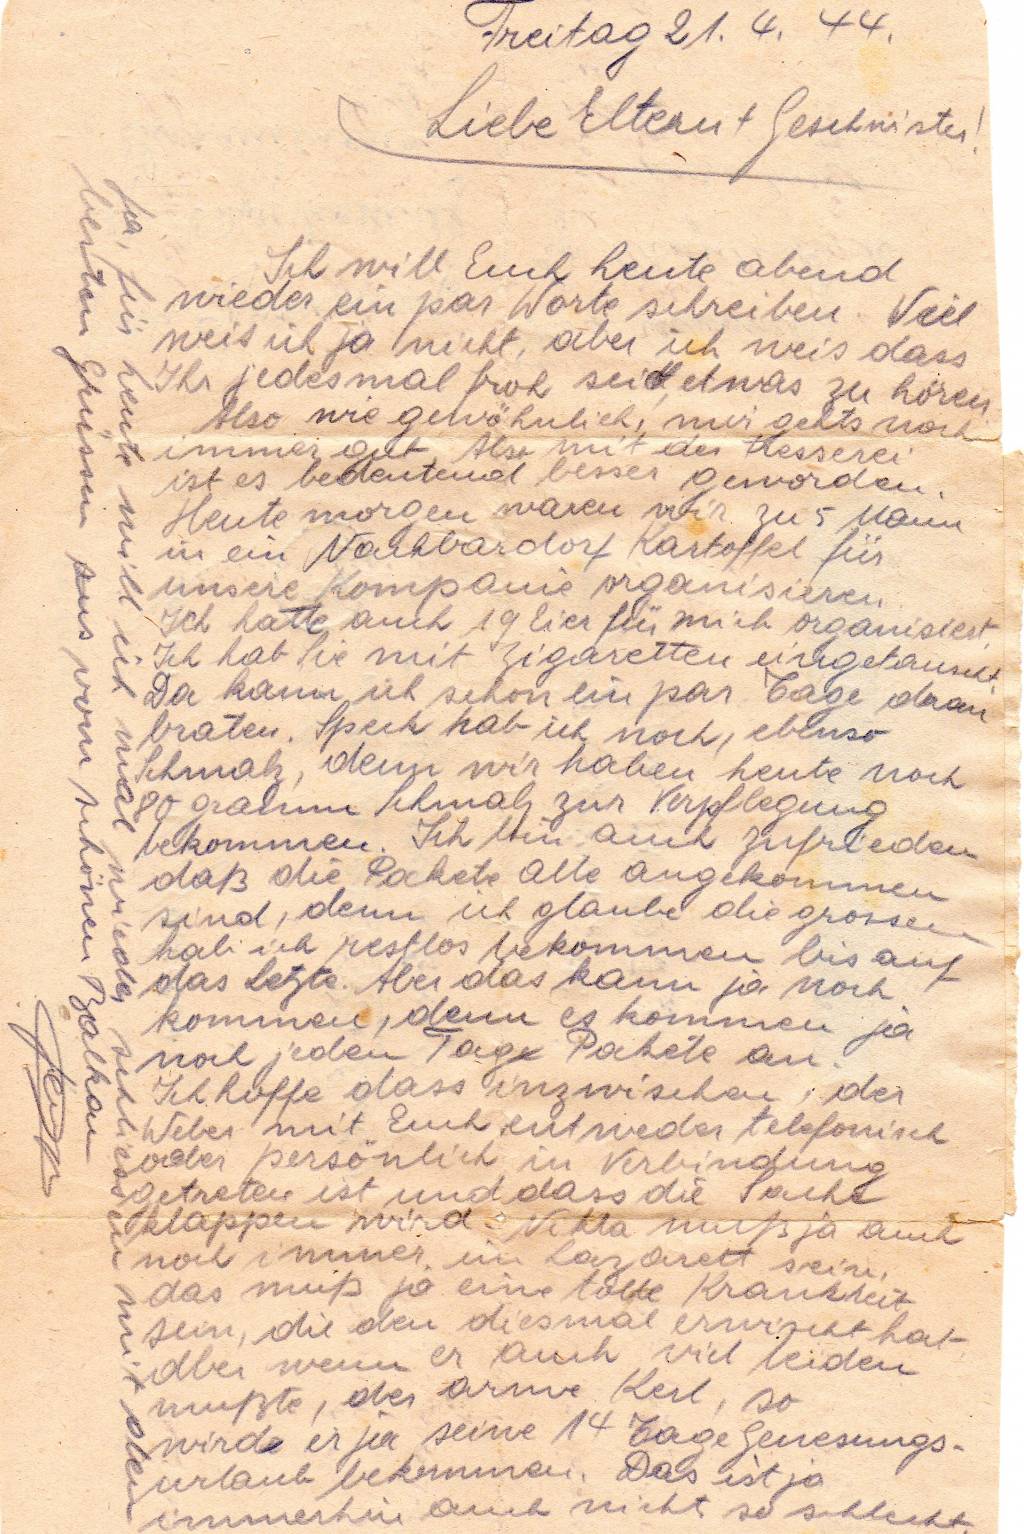 Freitag 21. 4. 44.
Liebe Eltern + Geschwister!
Ich will Euch heute abend
wieder ein par Worte schreiben. Viel
weis ich ja nicht, aber ich weis dass
Ihr jedesmal froh seid, etwas zu hören
Also wie gewöhnlich, mir gehts noch
immer gut. Also mit der Esserei
ist es bedeutend besser geworden.
Heute morgen waren wir zu 5 Mann
in ein Nachbardorf Kartoffel für
unsere Kompanie organisieren.
Ich hatte auch 19 Eier für mich organisiert
Ich hab Sie mit Zigaretten eingetauscht
Da kann ich schon ein par Tage dran
braten. Speck hab ich noch, ebenso
Schmalz, denn wir haben heute noch
80 gramm Schmalz zur Verpflegung
bekommen. Ich bin auch zufrieden
daß die Pakete alle angekommen
sind, denn ich glaube die grossen
hab ich restlos bekommen bis auf
das letzte. Aber das kann ja noch
kommen, denn es kommen ja
noch jeden Tag Pakete an.
Ich hoffe dass inzwischen, der
Weber mit Euch entweder telefonisch
oder persönlich in Verbindung
getreten ist und dass die Sache
klappen wird. muß ja auch
noch immer im Lazarett sein,
das muß ja eine tolle Krankheit
sein, die den diesmal erwischt hat
aber wenn er auch viel leiden
mußte, der arme Kerl, so
wird er ja seine 14 Tage Genesungs-
urlaub bekommen. Das ist ja
immerhin auch nicht so schlecht
Ja, für heute will ich mal wieder schliessen mit den
besten Grüssen aus vom schönen Balkan